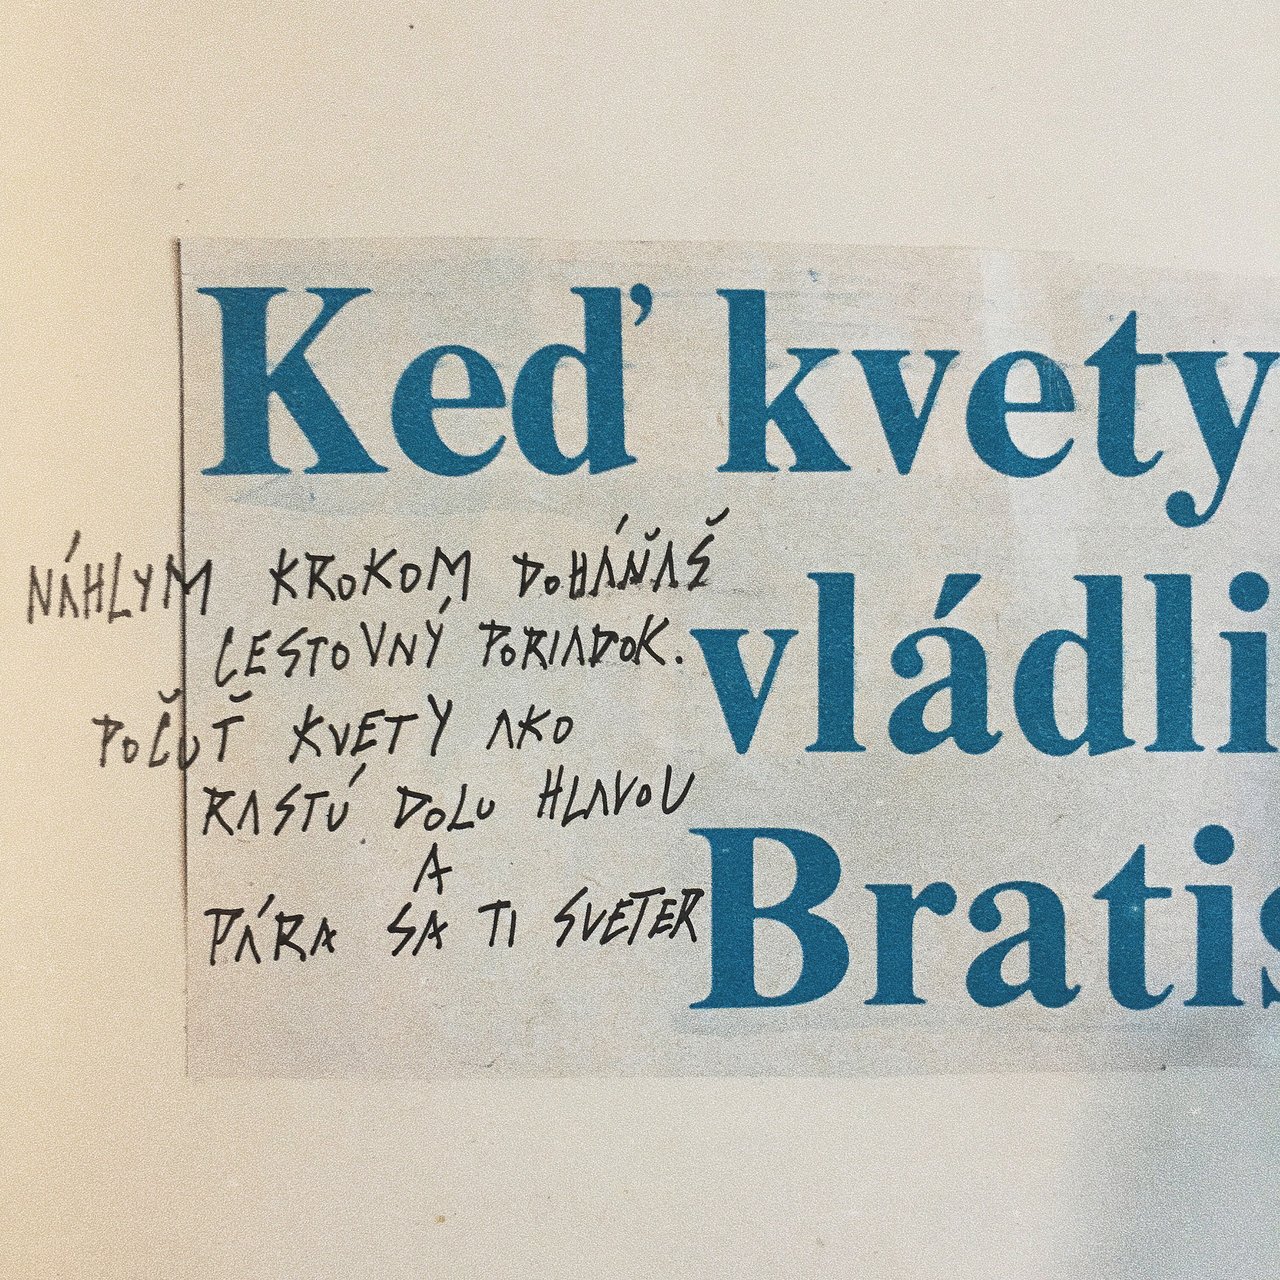 Keď kvety
NÁHLYM KROKOM DOHÁŇAŠ
CESTOVNÝ PORIADOK.
vládli
POČUŤ KVETY AKO
RASTÚ DOLU HLAVOU
A
Bratis
PÁRA SA TI SVETER